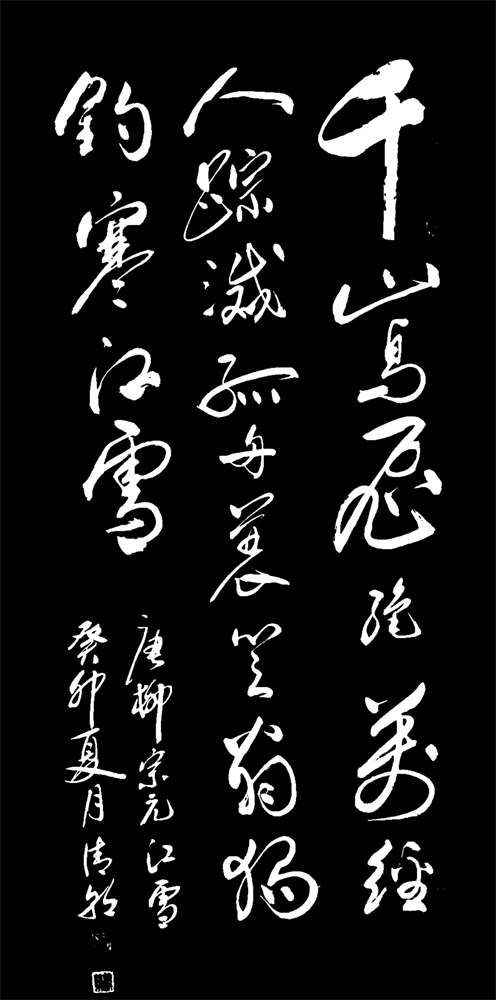 千山鳥飛絕萬經
人踪滅孤舟蓑笠翁獨
釣寒江雪
唐柳宗元江雪
癸卯夏月清